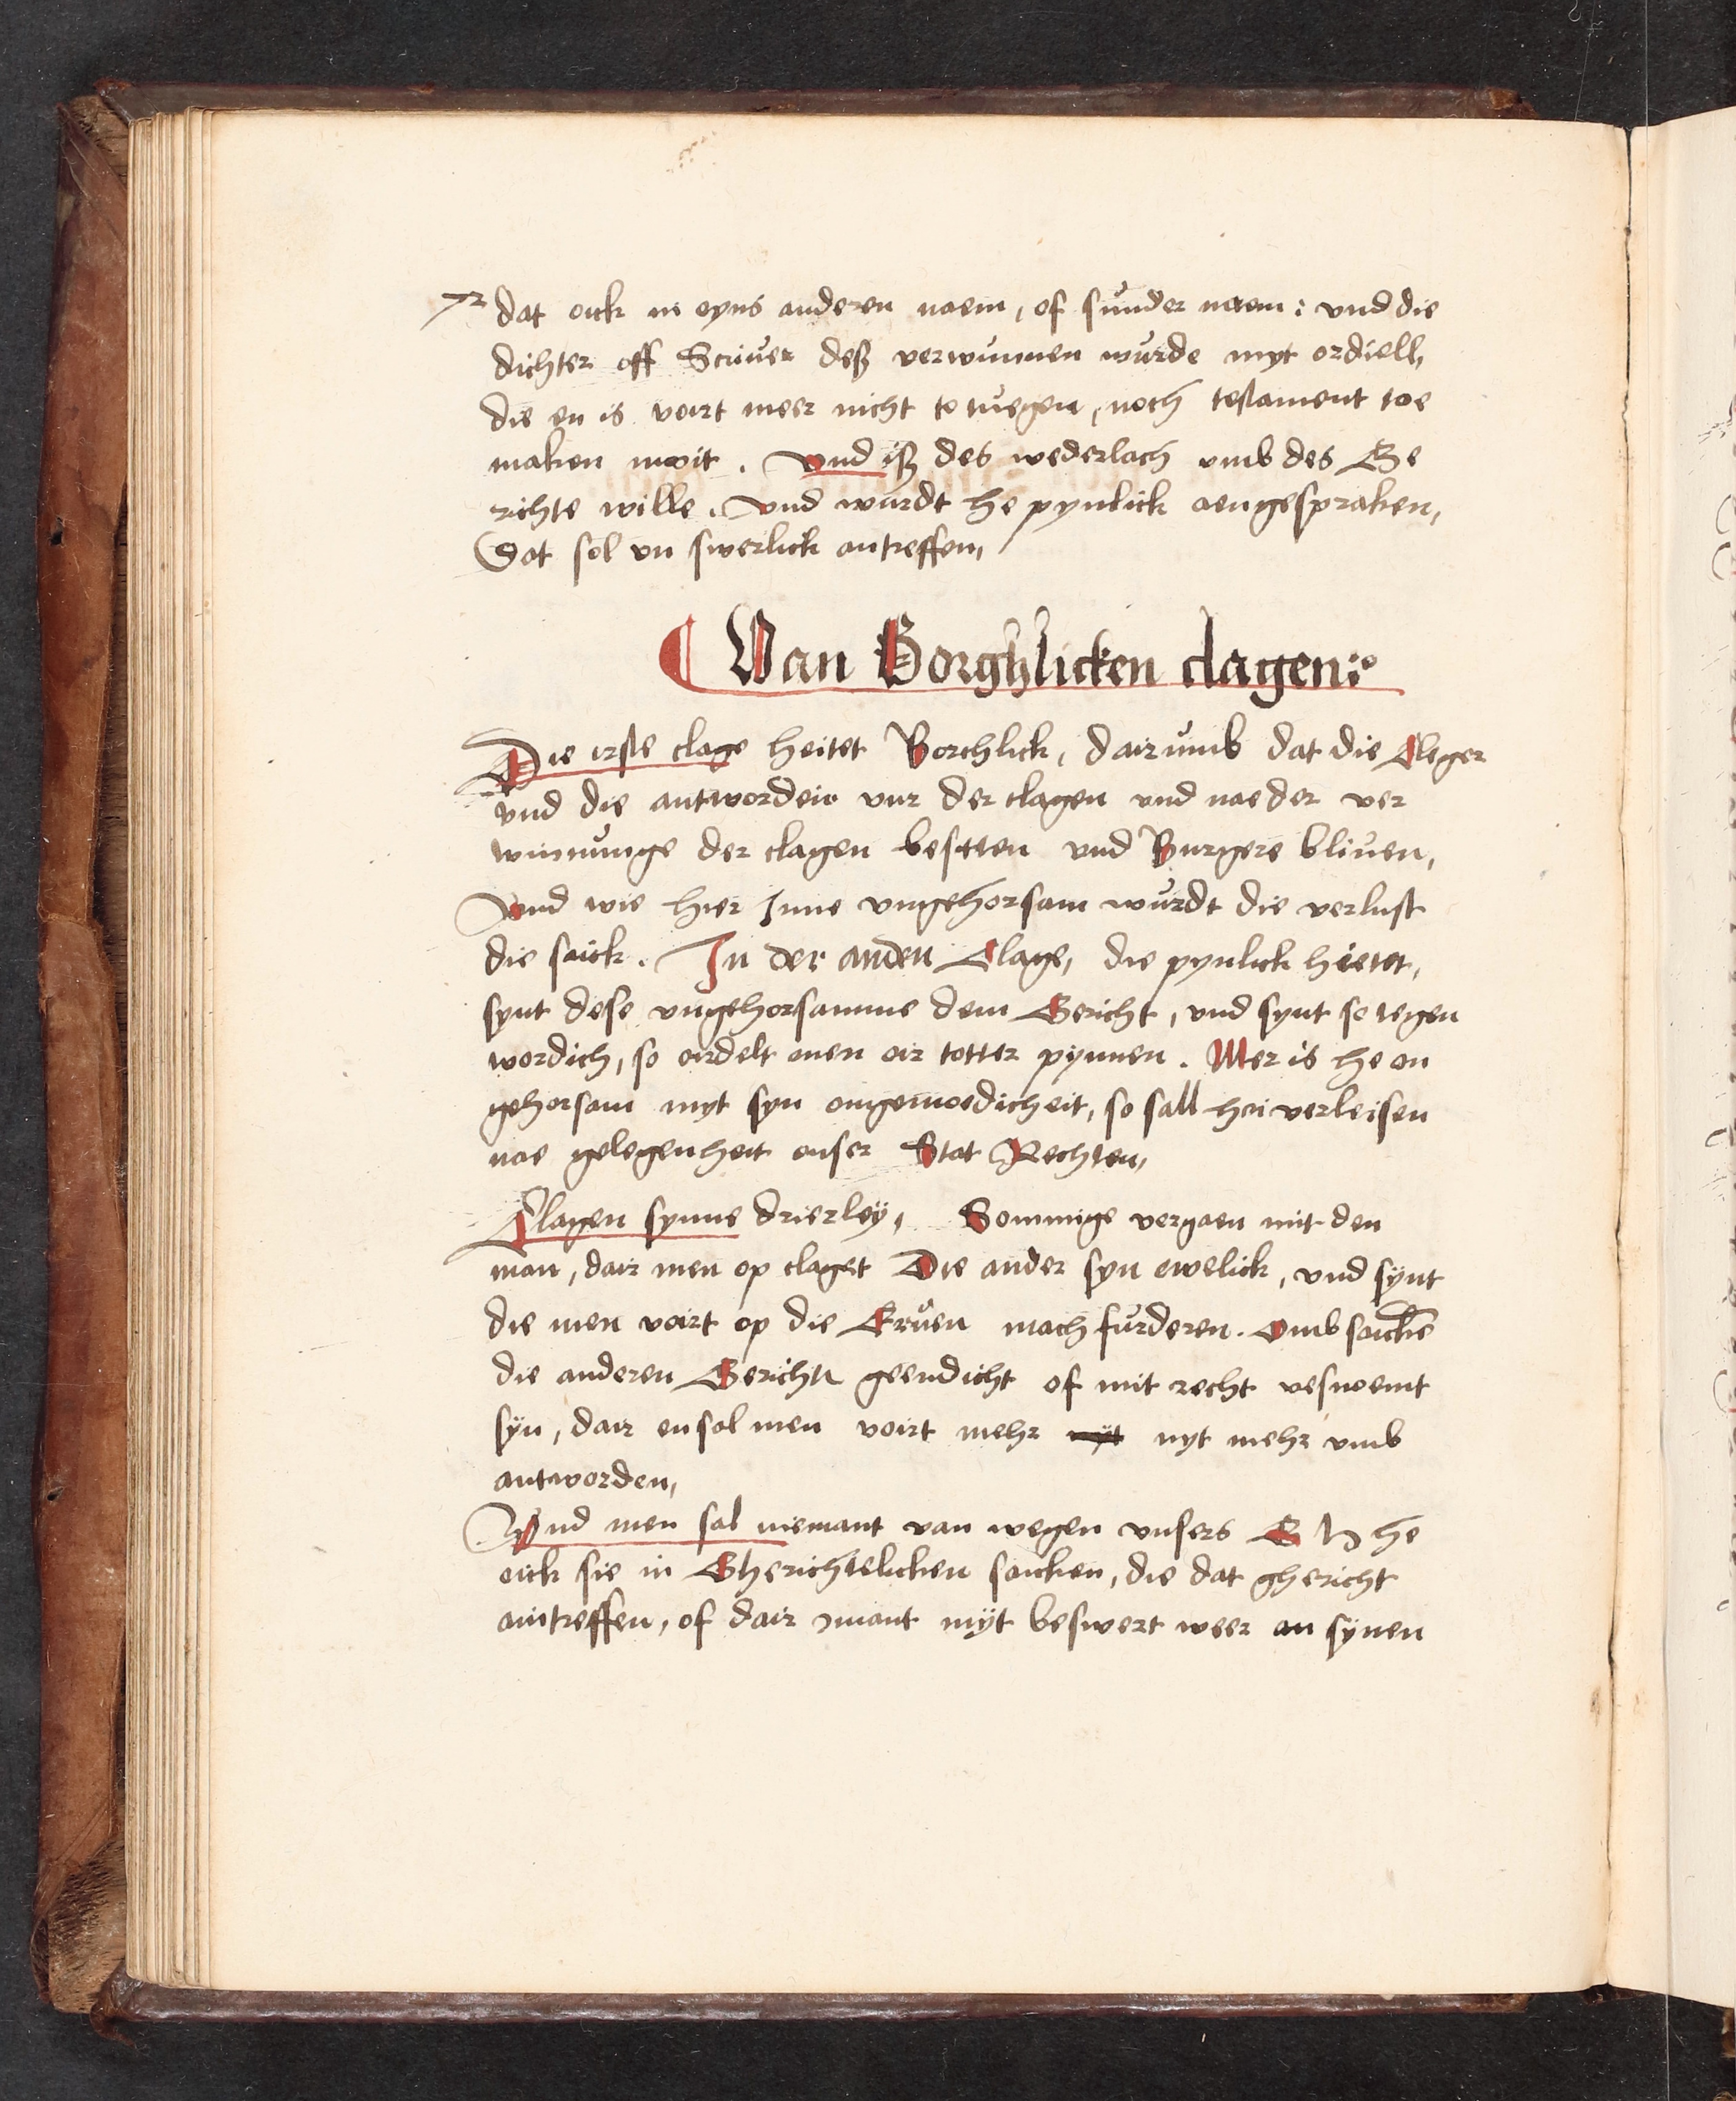 dat oick in eyns anderen naem, of sunder naem: vnd die
dichter off Scriuer deß verwunnen wurde myt ordiell,
die en is voirt meer nicht to tuegen, noch testament toe
maken moit. Vnd iß des wederlach vmb des Ge
richte wille. Vnd wurdt he pynlick aengespraken,
Dat sol vn swerlick antreffen,
Van Borghlicken clagen:
Die irste clage heitet Borchlick, dairumb dat die Cleger
vnd die antworden vur der clagen vnd nae der ver
winnunge der clagen besitten vnd Burgere bliuen,
Vnd wie hier Inne vngehorsam wurdt die verlust
die saick. In der anden Clage, die pynlick hietet,
synt dese vngehorsamme dem Gericht, vnd synt se tegen
wordich, so oirdelt men oir totter pynnen. Mer is he on
gehorsam myt syn ongemoedicheit, so sall hei verleisen
nae gelegenheit onser Stat Rechten,
Clagen synne drierleÿ, Sommige vergaen mit den
man, dair men op claget Die ander syn ewelick, vnd sÿnt
die men voirt op die Eruen mach furderen. Omb saicken
die anderen Gericht geendicht of mit recht vesnoemt
sÿn, dair en sal men voirt mehr nyt mehr vmb
antworden,
Vnd men sal niemant van wegen vnsers E he
oick sie in Gherichtelicken saicken, die dat ghericht
aintreffen, of dair imant mÿt beswert weer an sÿnen